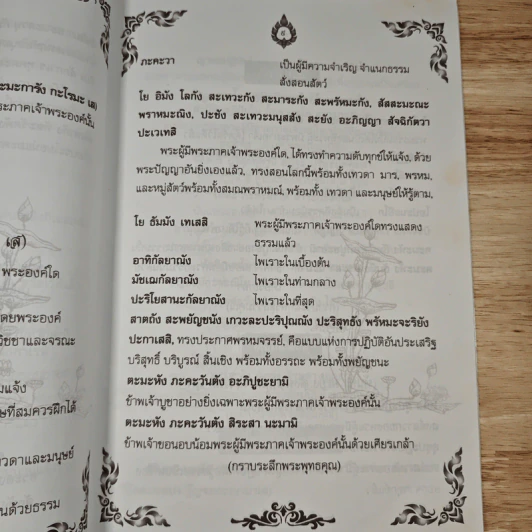 ะมะการัง กะโรมะ เส)
ระภาคเจ้าพระองค์นั้น
(ส)
พระองค์ใด
ดยพระองค์
วิชชาและจรณะ
แจ้ง
ษที่สมควรฝึกได้
วดาและมนุษย์
นด้วยธรรม
๕
ภะคะวา เป็นผู้มีความจำเริญ จำแนกธรรม
สั่งสอนสัตว์
โย อิมัง โลกัง สะเทวะกัง สะมาระกัง สะพรัหมะกัง, สัสสะมะณะ
พราหมะณิง, ปะชัง สะเทวะมะนุสสัง สะยัง อะภิญญา สัจฉิกัตวา
ปะเวเทสิ
พระผู้มีพระภาคเจ้าพระองค์ใด, ได้ทรงทำความดับทุกข์ให้แจ้ง, ด้วย
พระปัญญาอันยิ่งเองแล้ว, ทรงสอนโลกนี้พร้อมทั้งเทวดา มาร, พรหม,
และหมู่สัตว์พร้อมทั้งสมณพราหมณ์, พร้อมทั้ง เทวดา และมนุษย์ให้รู้ตาม,
โย ธัมมัง เทเสสิ พระผู้มีพระภาคเจ้าพระองค์ใดทรงแสดง
ธรรมแล้ว
อาทิกัลยาณัง ไพเราะในเบื้องต้น
มัชเฌกัลยาณัง ไพเราะในท่ามกลาง
ปะริโยสานะกัลยาณัง ไพเราะในที่สุด
สาตถัง สะพยัญชนัง เกวะละปะริปุณณัง ปะริสุทธัง พรัหมะจะริยัง
ปะกาเสสิ, ทรงประกาศพรหมจรรย์, คือแบบแห่งการปฏิบัติอันประเสริฐ
บริสุทธิ์ บริบูรณ์ สิ้นเชิง พร้อมทั้งอรรถะ พร้อมทั้งพยัญชนะ
ตะมะหัง ภะคะวันตัง อะภิปูชะยามิ
ข้าพเจ้าบูชาอย่างยิ่งเฉพาะพระผู้มีพระภาคเจ้าพระองค์นั้น
ตะมะหัง ภะคะวันตัง สิระสา นะมามิ
ข้าพเจ้าขอนอบน้อมพระผู้มีพระภาคเจ้าพระองค์นั้นด้วยเศียรเกล้า
(กราบระลึกพระพุทธคุณ)